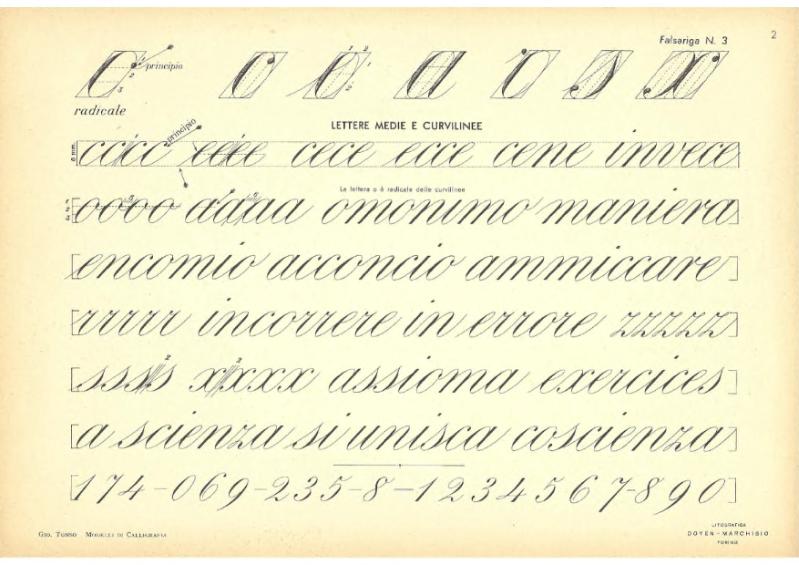 Falsariga N. 3
2
principio
radicale
c e a r s x
LETTERE MEDIE E CURVILINEE
principio
ccicc eeiee cece ecce cene invece
La lettera o è radicale delle curvilinee
oooo aaaaa omonimo maniera
encomio acconcio ammiccare
rrrrr incorrere in errore zzzzz
sssss xxxxx assioma exercices
a scienza si unisca coscienza
174-069-235-8-1234567-890
Gio. Tonso Modelli di Calligrafia
LITOGRAFICA
DOYEN-MARCHISIO
TORINO